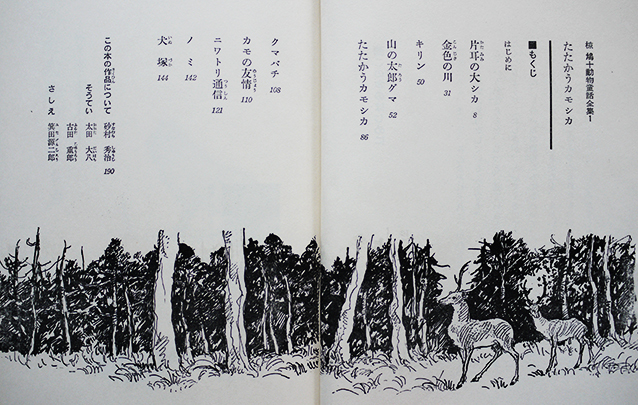 椋 鳩十動物童話全集1
たたかうカモシカ
■もくじ
はじめに
片耳の大シカ 8
金色の川 31
キリン 50
山の太郎グマ 52
たたかうカモシカ 86
クマバチ 108
カモの友情 110
ニワトリ通信 121
ノミ 142
犬塚 144
この本の作品について 砂村 秀治 190
そうてい 太田 大八
古田 重郎
さしえ 箕田源二郎